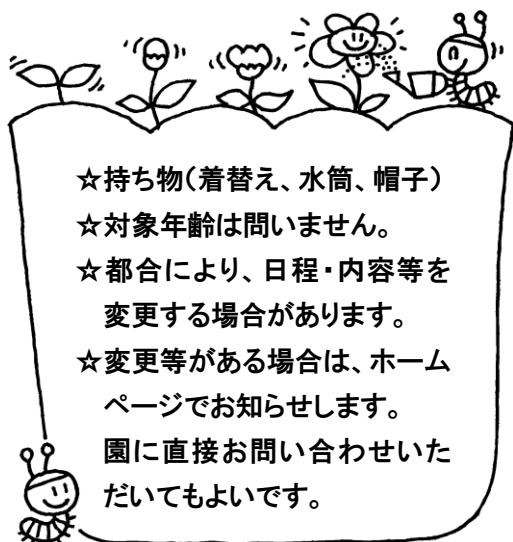 ☆持ち物(着替え、水筒、帽子)
☆対象年齢は問いません。
☆都合により、日程・内容等を
変更する場合があります。
☆変更等がある場合は、ホーム
ページでお知らせします。
園に直接お問い合わせいた
だいてもよいです。